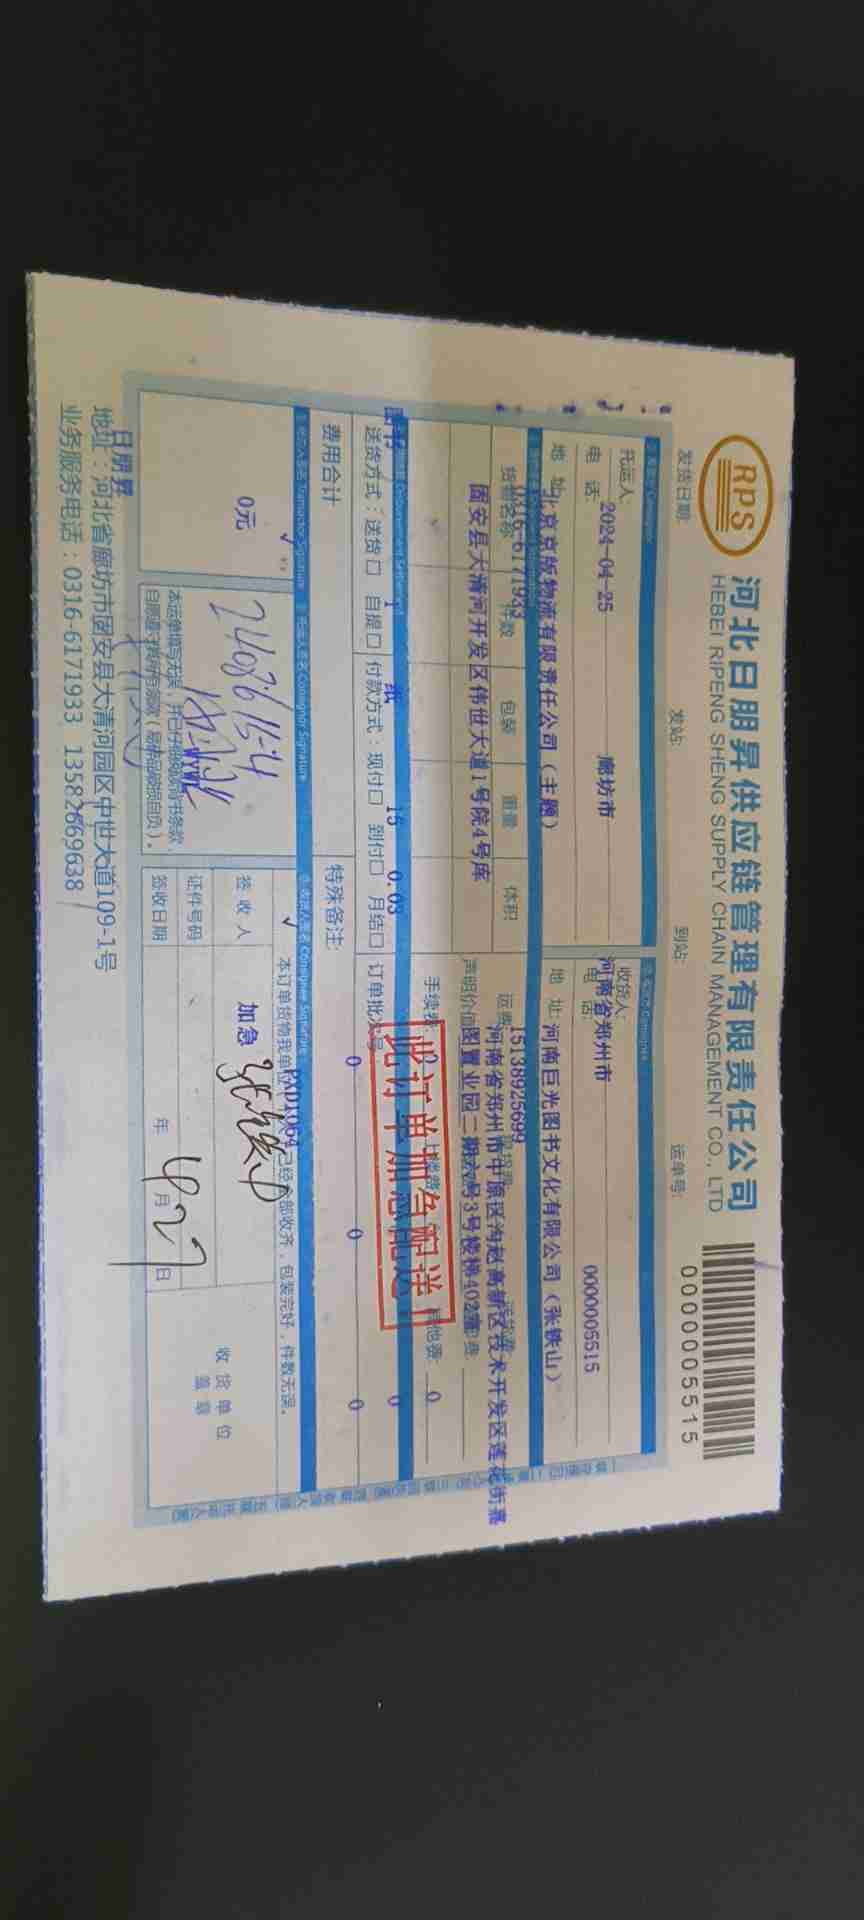 RPS
河北日朋昇供应链管理有限责任公司
HEBEI RIPENG SHENG SUPPLY CHAIN MANAGEMENT CO., LTD
0000005515
发货日期:
发站:
到站:
运单号:
托运人:
2024-04-25
廊坊市
收货人:
河南省郑州市
0000005515
电 话:
电 话:
地 址:
北京京版物流有限责任公司（主题）
地 址:
河南巨光图书文化有限公司（张铁山）
0316-6171933
15138925699
货物名称
件数
包装
重量
体积
运费:
固安县大清河开发区伟世大道1号院4号库
河南省郑州市中原区沟赵高新区技术开发区莲花街嘉
图置业园二期六号3号楼梯402室
声明价值
手续费:
0
上楼费:
其他费:
0
此订单加急配送
图书
1
纸
15
0.03
0
送货方式：送货□ 自提□ 付款方式：现付□ 到付□ 月结□
订单批次号
0
0
0
费用合计
特殊备注:
Consignor Signature
Consignee Signature
0元
2408615-4
WYWL
本订单货物我单位
已经全部收齐，包装完好，件数无误。
PAD1064
签 收 人
加急
张铁山
证件号码
签收日期
年 4月27日
收货单位
盖章
本运单填写无误，并已仔细阅读背书条款，
自愿遵守所有条款（易碎品破损自负）。
日朋昇
地址：河北省廊坊市固安县大清河园区中世大道109-1号
业务服务电话：0316-6171933 13582669638